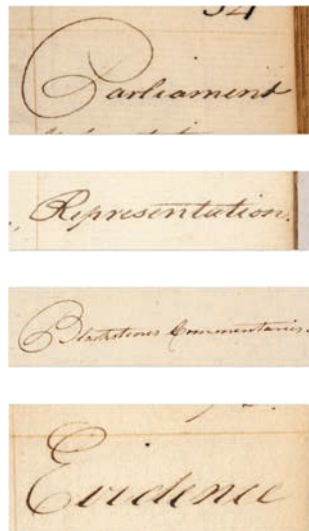 54
Parliament
Representation.
Blackstones Commentaries.
Evidence